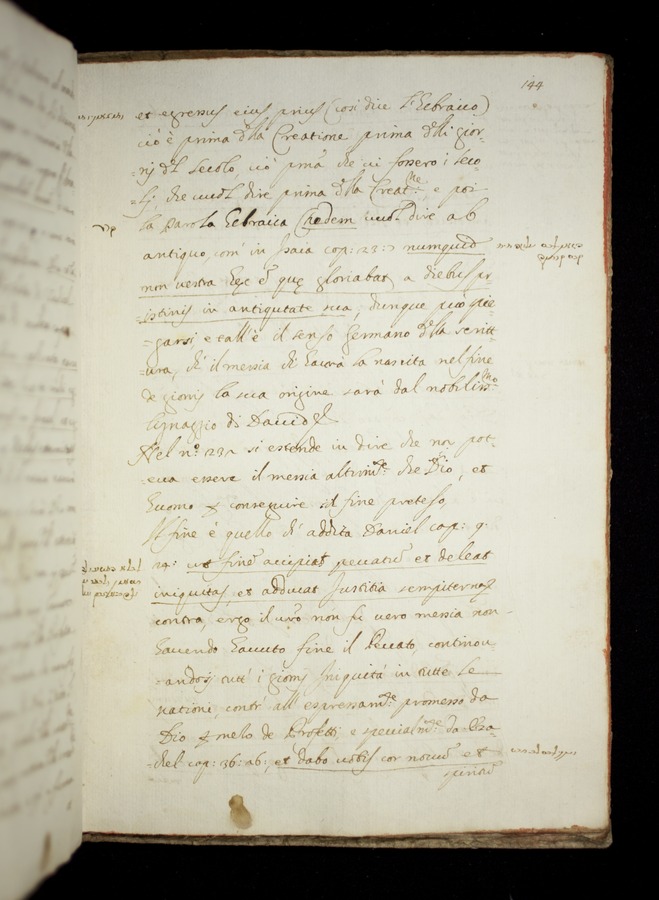 144
et egressus eius prius (così dice l'Ebraico)
ciò è prima d'lla Creatione prima d'lli gior-
=nj d'l secolo, ciò prma che vi fossero i seco-
=lj, che vuol dire prima d'lla Creatne, e poi
la parola Ebraica Chedem vuol dire ab
antiquo, com' in Isaia cap: 23: 7 numquid
non vestra hęc ē quę gloriabat a diebus pr-
=istinis in antiqutate sua, dunque può pie-
=garsi e tall'è il senso germano d'lla scritt-
=ura, ch' il messia ch' havrà la nascita nel fine
de giorni la sua origine sarà dal nobilissmo
lignaggio di David
Nel n.o 232 si estende in dire che non pot-
=eva essere il messia altrimte che Dio, et
huomo conseguire il fine preteso,
Il fine è quello ch' addita Daniel cap: 9.
24: ut finē accipiat peccatū et deleat
iniquitas, et adducat Justitia sempiterna
contra, ergo il vro non fù vero messia non
havendo havuto fine il Peccato, continou-
=andosi tutt' i giorni Iniquità in tutte le
nationi, contr' all' espressamte promesso da
Dio melo de Profeti, e specialmte da Eza-
=chel cap: 36: 26: et dabo vobis cor novū et
spiritū